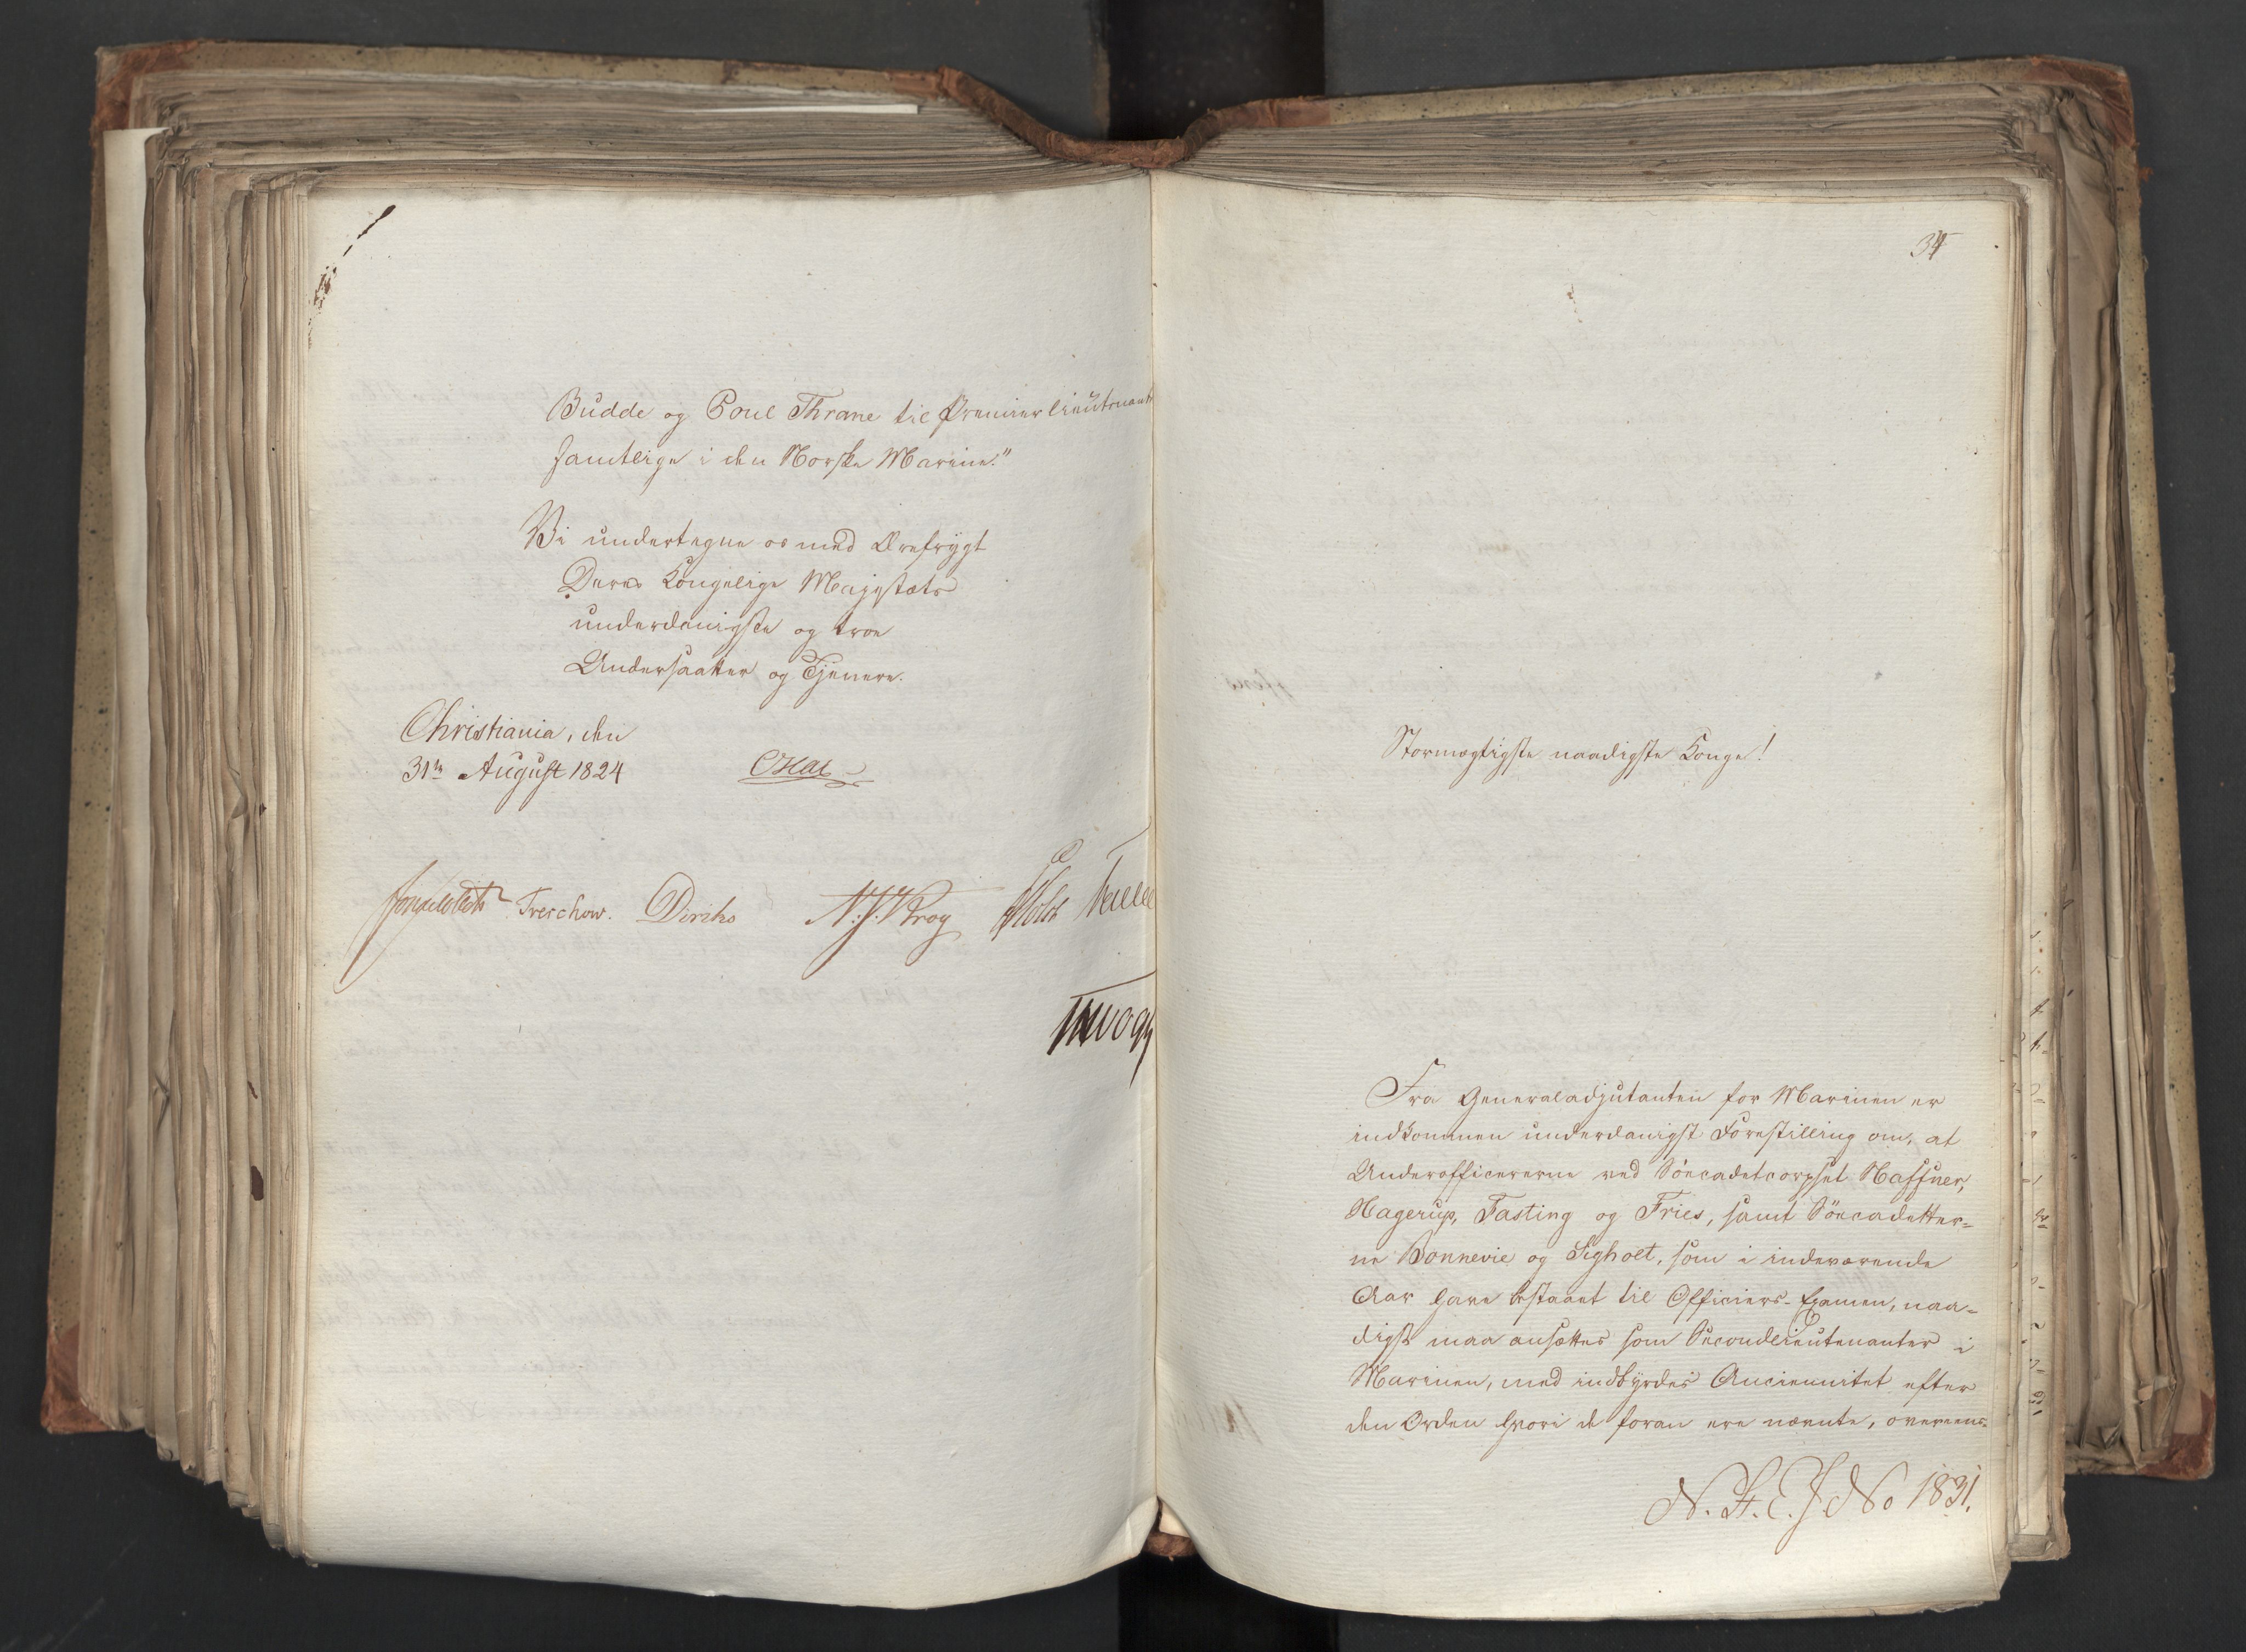 Budde og Poul Thrane til Premierlieutnant
samtlige i den Norske Marine."
Vi undertegne os med Ærefrygt
Deres Kongelige Majestæts
underdanigste og troe
Undersaatter og Tjenere.
Christiania, den
31te August 1824
Treschow. Diriks N. J. Krog Holst
Krogh
34
Stormægtigste naadigste Konge!
Fra Generaladjutanten for Marinen er
indkommen underdanigst Forestilling om, at
Underofficererne ved Söecadetcorpset Haffner,
Hagerup, Fasting og Fries, samt Söecadetter-
ne Bonnevie og Sigholt, som i indeværende
Aar have bestaaet til Officiers-Examen, naa-
digst maa ansættes som Secondlieutenanter i
Marinen, med indbyrdes Anciennitet efter
den Orden hvori de foran ere nævnte, overeens-
No 1831.